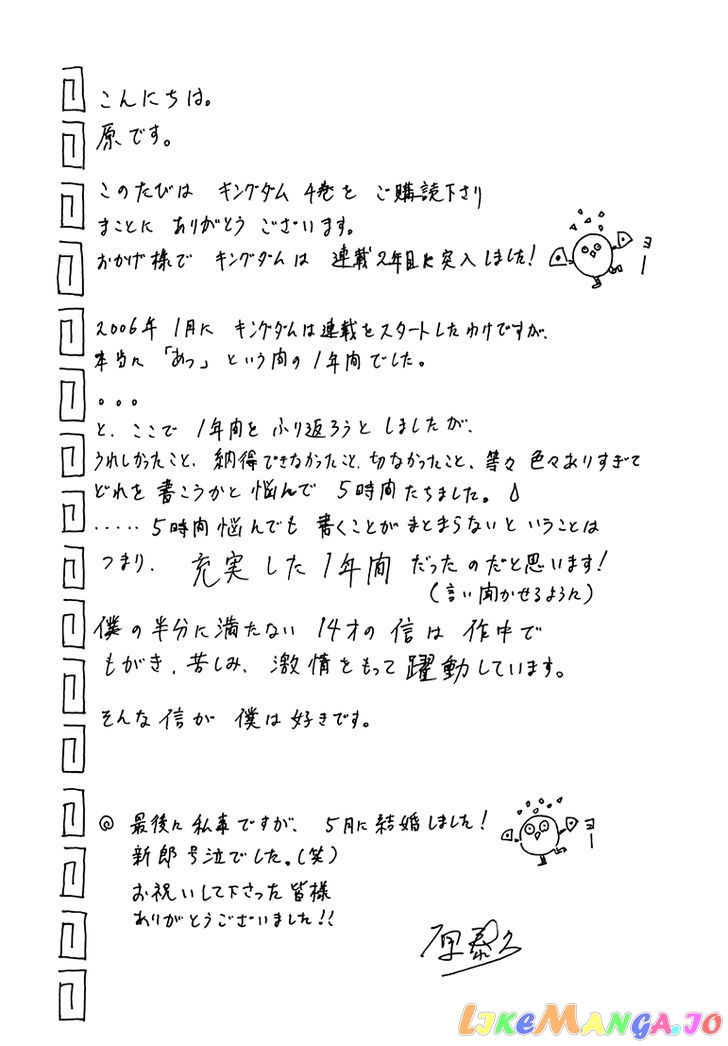 こんにちは。
原です。
このたびは キングダム 4巻を ご購読下さり
まことに ありがとう ございます。
おかげ様で キングダムは 連載2年目に突入しました！
ヨー
2006年 1月に キングダムは連載をスタートしたわけですが、
本当に 「あっ」 という間の 1年間でした。
。。。
と、ここで 1年間を ふり返ろうと しましたが、
うれしかったこと、納得できなかったこと、切なかったこと、等々 色々ありすぎて
どれを 書こうかと 悩んで 5時間たちました。
‥‥‥5時間 悩んでも 書くことが まとまらないと いうことは
つまり、充実した1年間 だったのだと思います！
(言い聞かせるように)
僕の半分に満たない 14才の 信は 作中で
もがき、苦しみ、激情をもって躍動しています。
そんな信が 僕は好きです。
◎ 最後に私事ですが、5月に結婚しました！
ヨー
新郎号泣でした。(笑)
お祝いして下さった皆様
ありがとうございました!!
原泰久
LIKEMANGA.IO